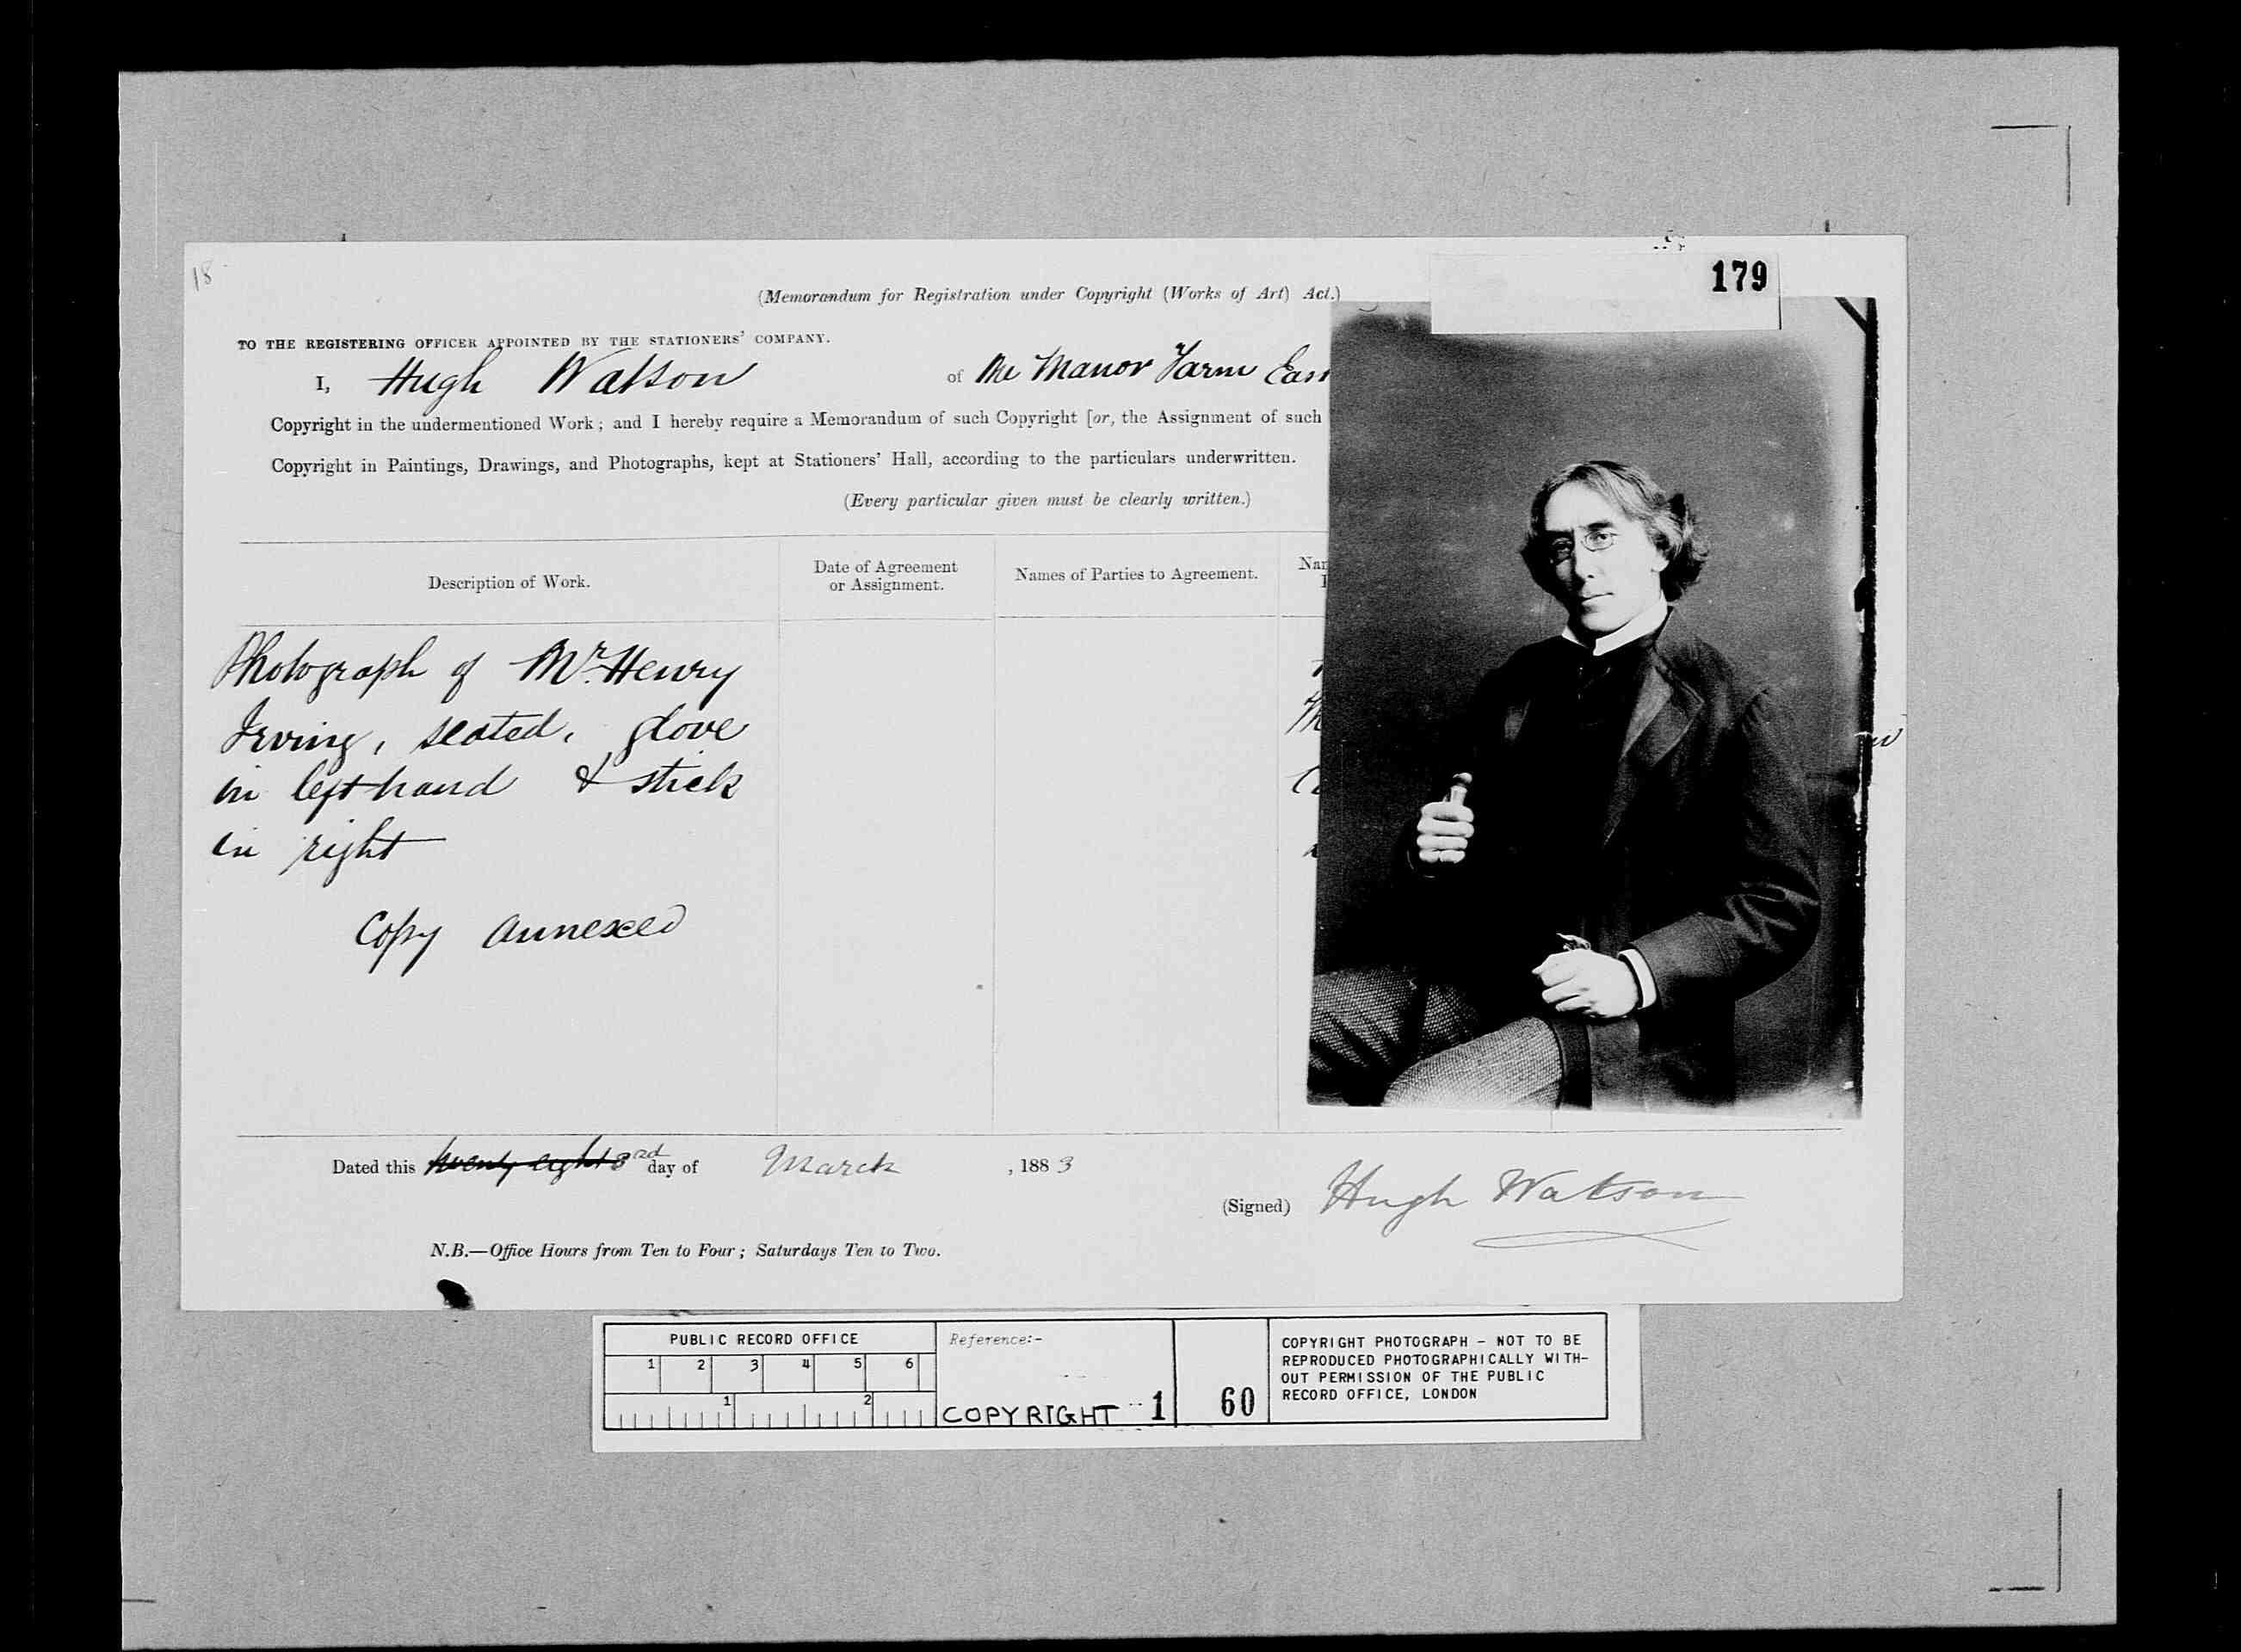 18
179
(Memorandum for Registration under Copyright (Works of Art) Act.)
TO THE REGISTERING OFFICER APPOINTED BY THE STATIONERS' COMPANY.
I, Hugh Watson of The Manor Farm East
Copyright in the undermentioned Work; and I hereby require a Memorandum of such Copyright [or, the Assignment of such
Copyright in Paintings, Drawings, and Photographs, kept at Stationers' Hall, according to the particulars underwritten.
(Every particular given must be clearly written.)
Description of Work.
Date of Agreement
or Assignment.
Names of Parties to Agreement.
Photograph of Mr. Henry
Irving, seated, glove
in left hand & stick
in right
Copy annexed
Dated this twenty eight 3rd day of March, 1883
(Signed) Hugh Watson
N.B.—Office Hours from Ten to Four; Saturdays Ten to Two.
PUBLIC RECORD OFFICE
1 2 3 4 5 6
1 2
Reference:-
COPYRIGHT 1
60
COPYRIGHT PHOTOGRAPH - NOT TO BE
REPRODUCED PHOTOGRAPHICALLY WITH-
OUT PERMISSION OF THE PUBLIC
RECORD OFFICE, LONDON